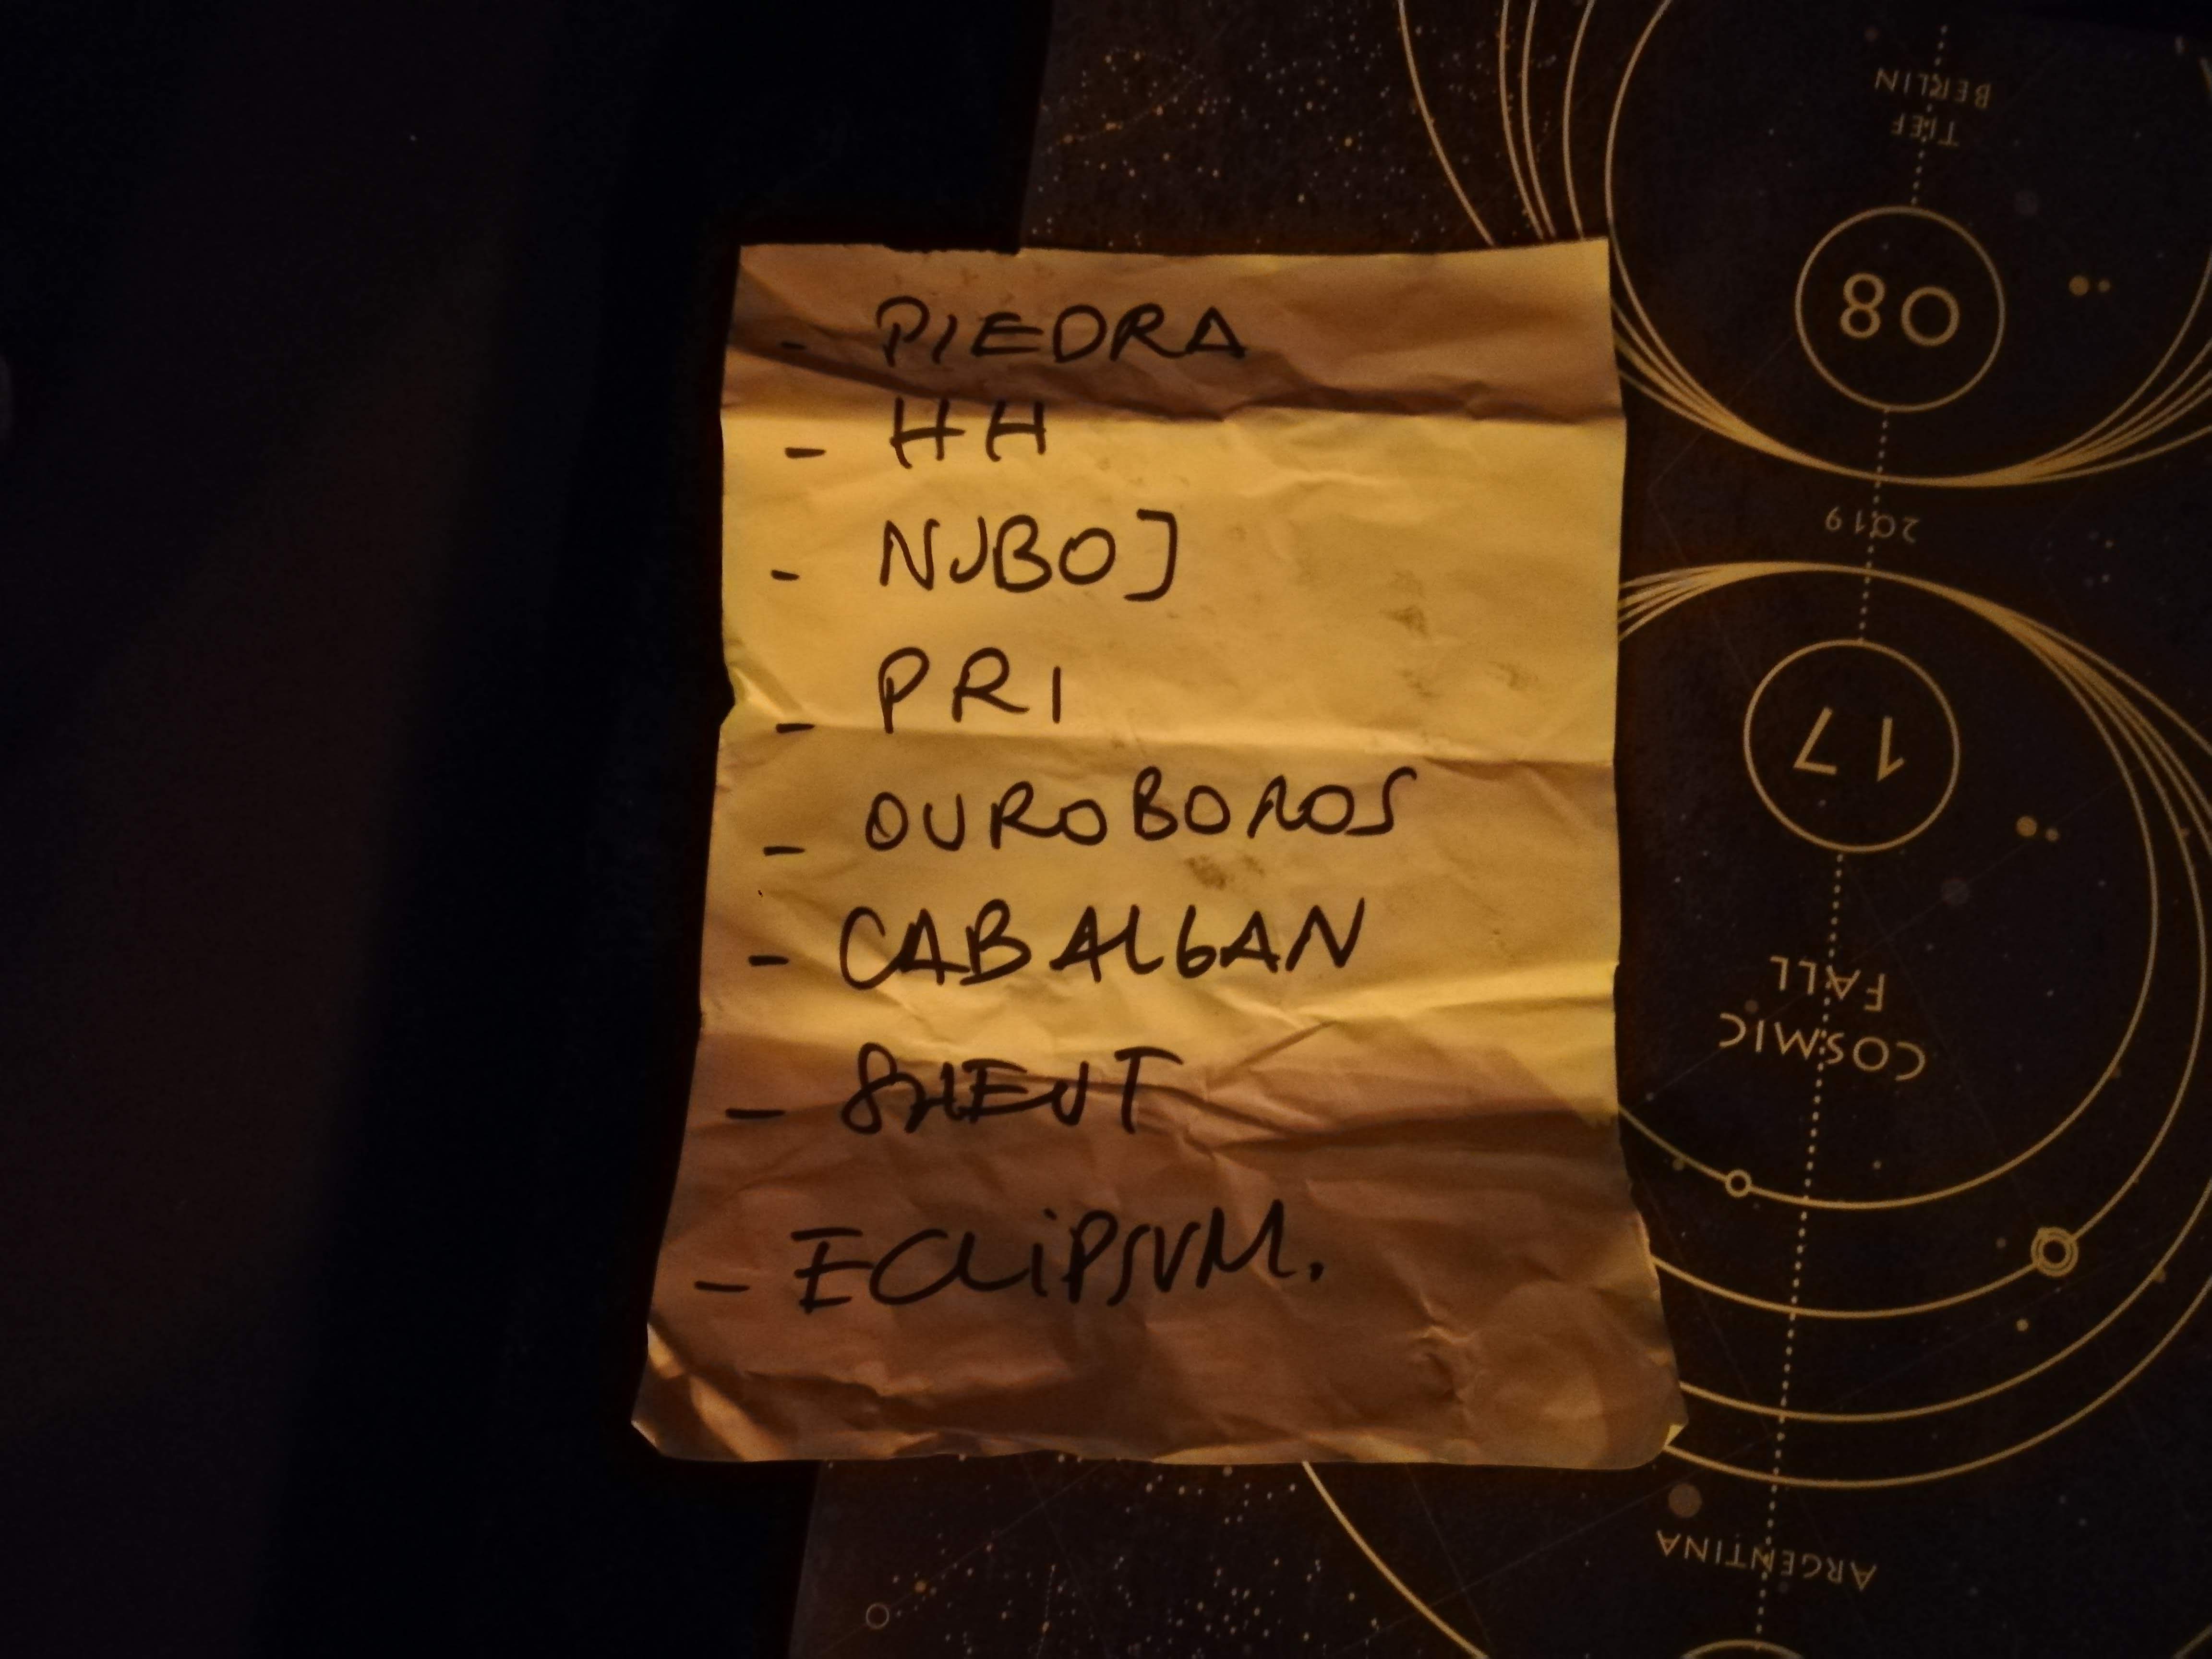 - PIEDRA
- HH
- NJBOJ
- PRI
- OUROBOROS
- CABALGAN
- ECLIPSUM.
BERLIN
TIEF
08
2019
17
COSMIC
FALL
ARGENTINA